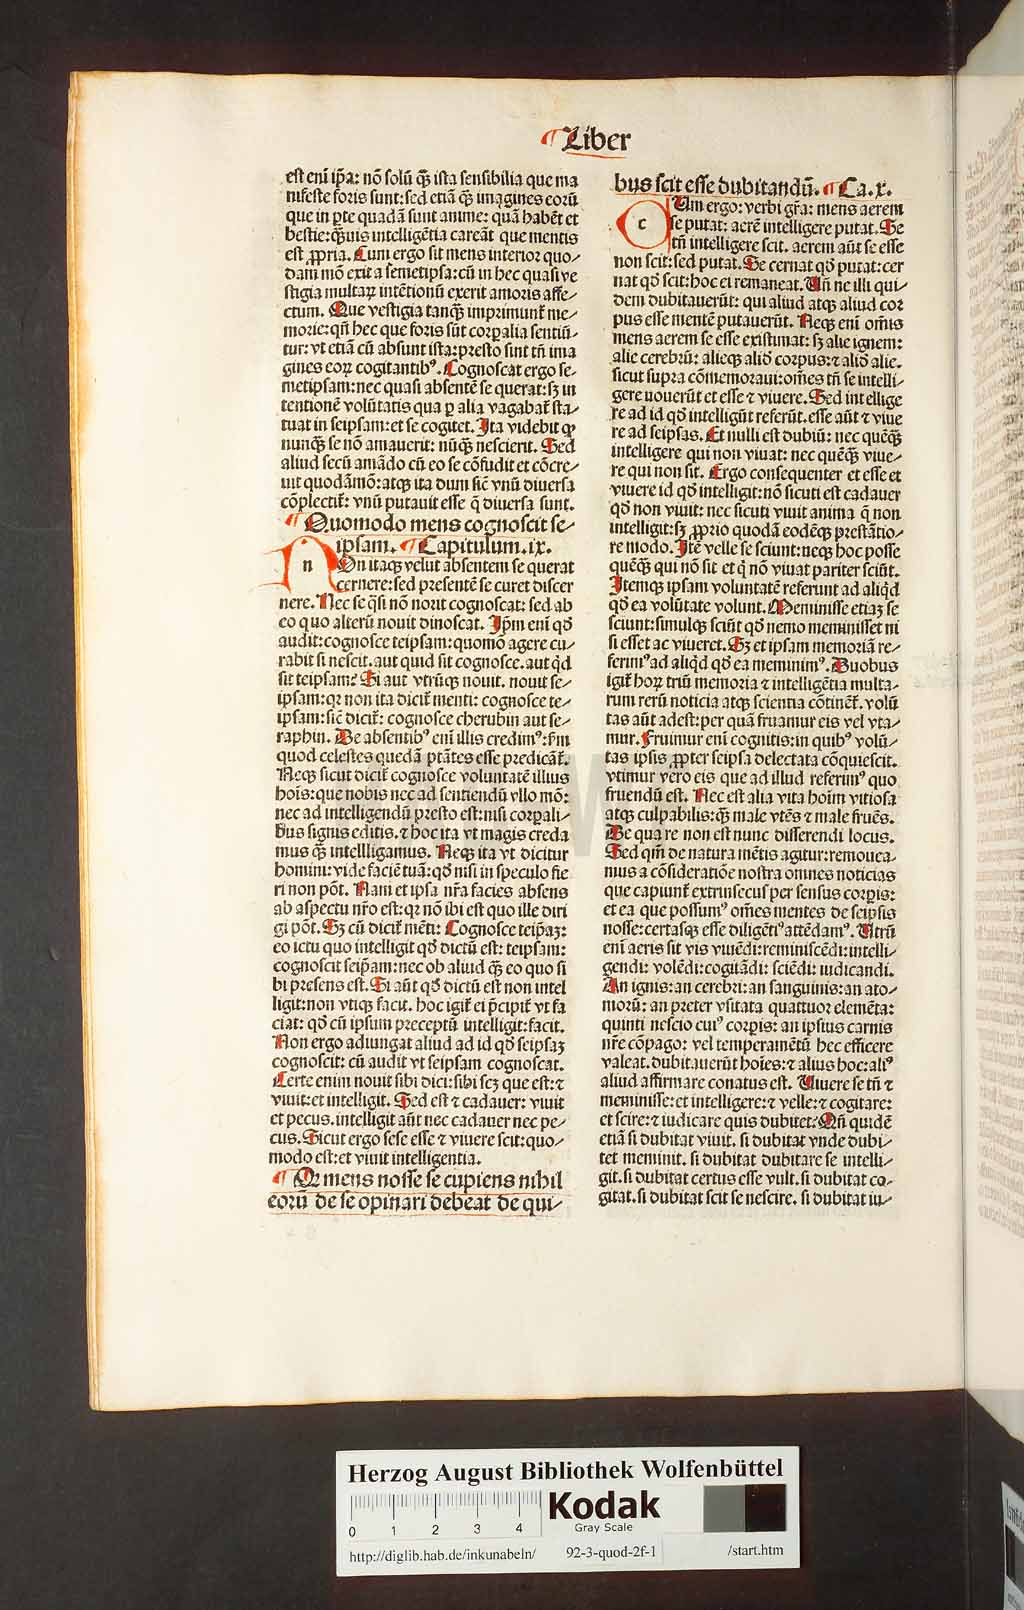 Liber
est enī ip̄a: nō solū qꝫ ista sensibilia que ma
nifeste foris sunt: sed etiā qꝫ imagines eorū
que in ꝑte quadā sunt anime: quā habēt et
bestie: qꝫuis intelligētia careāt que mentis
est ꝓpria. Cum ergo sit mens interior quo⸗
dam mō exit a semetipsa: cū in hec quasi ve
stigia multaꝝ intētionū exerit amoris affe⸗
ctum. Que vestigia tanqꝫ imprimunt̄ me⸗
morie: qn̄ hec que foris sūt corꝑalia sentiū⸗
tur: vt etiā cū absunt ista: presto sint tn̄ ima
gines eoꝝ cogitantibꝰ. Cognoscat ergo se⸗
metipsam: nec quasi absentē se querat: sꝫ in
tentionē volūtatis qua ꝑ alia vagabat̄ sta⸗
tuat in seipsam: et se cogitet. Ita videbit ꝙ
nunqꝫ se nō amauerit: nūqꝫ nescierit. Sed
aliud secū amādo cū eo se cōfudit et cōcre⸗
uit quodāmō: atqꝫ ita dum sic̄ vnū diuersa
cōplectit̄: vnū putauit esse q̄ diuersa sunt.
¶ Quomodo mens cognoscit se⸗
ipsam. ¶ Capitulum .ix.
n On itaqꝫ velut absentem se querat
cernere: sed presentē se curet discer
nere. Nec se q̄si nō norit cognoscat: sed ab
eo quo alterū nouit dinoscat. Ip̄m enī qd̄
audit: cognosce teipsam: quomō agere cu⸗
rabit si nescit. aut quid sit cognosce. aut qd̄
sit teipsam? Si aut vtrūqꝫ nouit. nouit se⸗
ipsam: qꝛ non ita dicit̄ menti: cognosce te⸗
ipsam: sic̄ dicit̄: cognosce cherubin aut se⸗
raphin. De absentibꝰ enī illis credimꝰ: sm̄
quod celestes quedā ptātes esse predicāt̄.
Neqꝫ sicut dicit̄ cognosce voluntatē illius
hoīs: que nobis nec ad sentiendū vllo mō:
nec ad intelligendū presto est: nisi corꝑali⸗
bus signis editis. ⁊ hoc ita vt magis creda
mus qꝫ intelllígamus. Neqꝫ ita vt dicitur
homini: vide faciē tuā: qd̄ nisi in speculo fie
ri non pōt. Nam et ipsa nr̄a facies absens
ab aspectu nr̄o est: qꝛ nō ibi est quo ille diri
gi pōt. Sꝫ cū dicit̄ mēti: Cognosce teip̄aꝫ:
eo ictu quo intelligit qd̄ dictū est: teipsam:
cognoscit seip̄am: nec ob aliud qꝫ eo quo si
bi presens est. Si aūt qd̄ dictū est non intel
ligit: non vtiqꝫ facit. hoc igit̄ ei p̄cipit̄ vt fa
ciat: qd̄ cū ipsum preceptū intelligit: facit.
Non ergo adiungat aliud ad id qd̄ seipsaꝫ
cognoscit: cū audit vt seipsam cognoscat.
Certe enim nouit sibi dici: sibi scꝫ que est: ⁊
viuit: et intelligit. Sed est ⁊ cadauer: viuit
et pecus. intelligit aūt nec cadauer nec pe⸗
cus. Sicut ergo sese esse ⁊ viuere scit: quo⸗
modo est: et viuit intelligentia.
¶ Qꝛ mens nosse se cupiens nihil
eorū de se opinari debeat de qui⸗
bus scit esse dubitandū. ¶ Ca. x.
c Vm ergo: verbi gr̄a: mens aerem
se putat: aerē intelligere putat. Se
tn̄ intelligere scit. aerem aūt se esse
non scit: sed putat. Se cernat qd̄ putat: cer
nat qd̄ scit: hoc ei remaneat. Vn̄ ne illi qui⸗
dem dubitauerūt: qui aliud atqꝫ aliud cor
pus esse mentē putauerūt. Neqꝫ enī om̄is
mens aerem se esse existimat: sꝫ alie ignem:
alie cerebrū: alieqꝫ alid̄ corpus: ⁊ alid̄ alie.
sicut supra cōmemoraui: om̄es tn̄ se intelli⸗
gere nouerūt et esse ⁊ viuere. Sed intellige
re ad id qd̄ intelligūt referūt. esse aūt ⁊ viue
re ad seipsas. Et nulli est dubiū: nec quēqꝫ
intelligere qui non viuat: nec quēqꝫ viue⸗
re qui non sit. Ergo consequenter et esse et
viuere id qd̄ intelligit: nō sicuti est cadauer
qd̄ non viuit: nec sicuti viuit anima q̄ non
intelligit: sꝫ ꝓprio quodā eodēqꝫ prestātio⸗
re modo. Itē velle se sciunt: neqꝫ hoc posse
quēqꝫ qui nō sit et q̄ nō viuat pariter sciūt.
Itemqꝫ ipsam voluntatē referunt ad aliqd̄
qd̄ ea volūtate volunt. Meminisse etiaꝫ se
sciunt: simulqꝫ sciūt qd̄ nemo meminisset ni
si esset ac viueret. Sꝫ et ipsam memoriā re⸗
ferimꝰ ad aliqd̄ qd̄ ea meminimꝰ. Duobus
igit̄ hoꝝ triū memoria ⁊ intelligētia multa⸗
rum rerū noticia atqꝫ scientia cōtinēt̄. volū
tas aūt adest: per quā fruamur eis vel vta⸗
mur. Fruimur enī cognitis: in quibꝰ volū⸗
tas ipsis ꝓpter seipsa delectata cōquiescit.
vtimur vero eis que ad illud referimꝰ quo
fruendū est. Nec est alia vita hoīm vitiosa
atqꝫ culpabilis: qꝫ male vtēs ⁊ male fruēs.
De qua re non est nunc disserendi locus.
Sed qm̄ de natura mētis agitur: remouea⸗
mus a cōsideratiōe nostra omnes noticias
que capiunt̄ extrinsecus per sensus corꝑis:
et ea que possumꝰ om̄es mentes de seipsis
nosse: certasqꝫ esse diligētiꝰ attēdamꝰ. Vtrū
enī aeris sit vis viuēdi: reminiscēdi: intelli⸗
gendi: volēdi: cogitādi: sciēdi: iudicandi.
An ignis: an cerebri: an sanguinis: an ato⸗
morū: an preter vsitata quattuor elemēta:
quinti nescio cuiꝰ corꝑis: an ipsius carnis
nr̄e cōpago: vel temperamētū hec efficere
valeat. dubitauerūt hoīes: ⁊ alius hoc: aliꝰ
aliud affirmare conatus est. Viuere se tn̄ ⁊
meminisse: et intelligere: ⁊ velle: ⁊ cogitare:
et scire: ⁊ iudicare quis dubitet: Qn̄ quidē
etiā si dubitat viuit. si dubitat vnde dubi⸗
tet meminit. si dubitat dubitare se intelli⸗
git. si dubitat certus esse vult. si dubitat co⸗
gitat. si dubitat scit se nescire. si dubitat iu⸗
Herzog August Bibliothek Wolfenbüttel
0 1 2 3 4
Kodak
Gray Scale
http://diglib.hab.de/inkunabeln/ 92-3-quod-2f-1 /start.htm